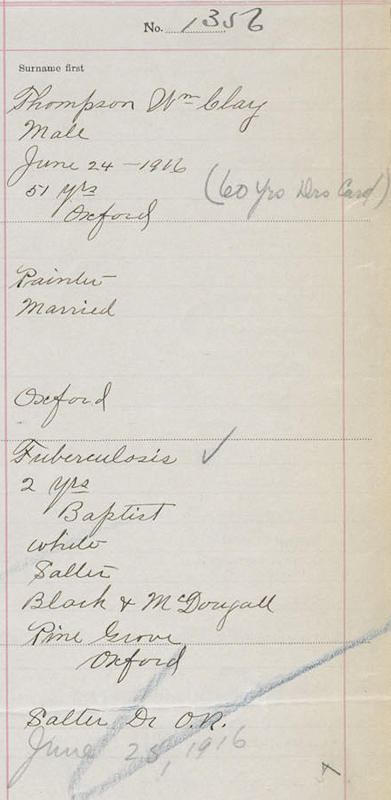 No. 1356
Surname first
Thompson Wm Clay
Male
June 24 - 1916
51 yrs (60 yrs Drs Card)
Oxford
Painter
Married
Oxford
Tuberculosis ✓
2 yrs
Baptist
White
Salter
Black & McDougall
Pine Grove
Oxford
Salter Dr O.R.
June 25, 1916